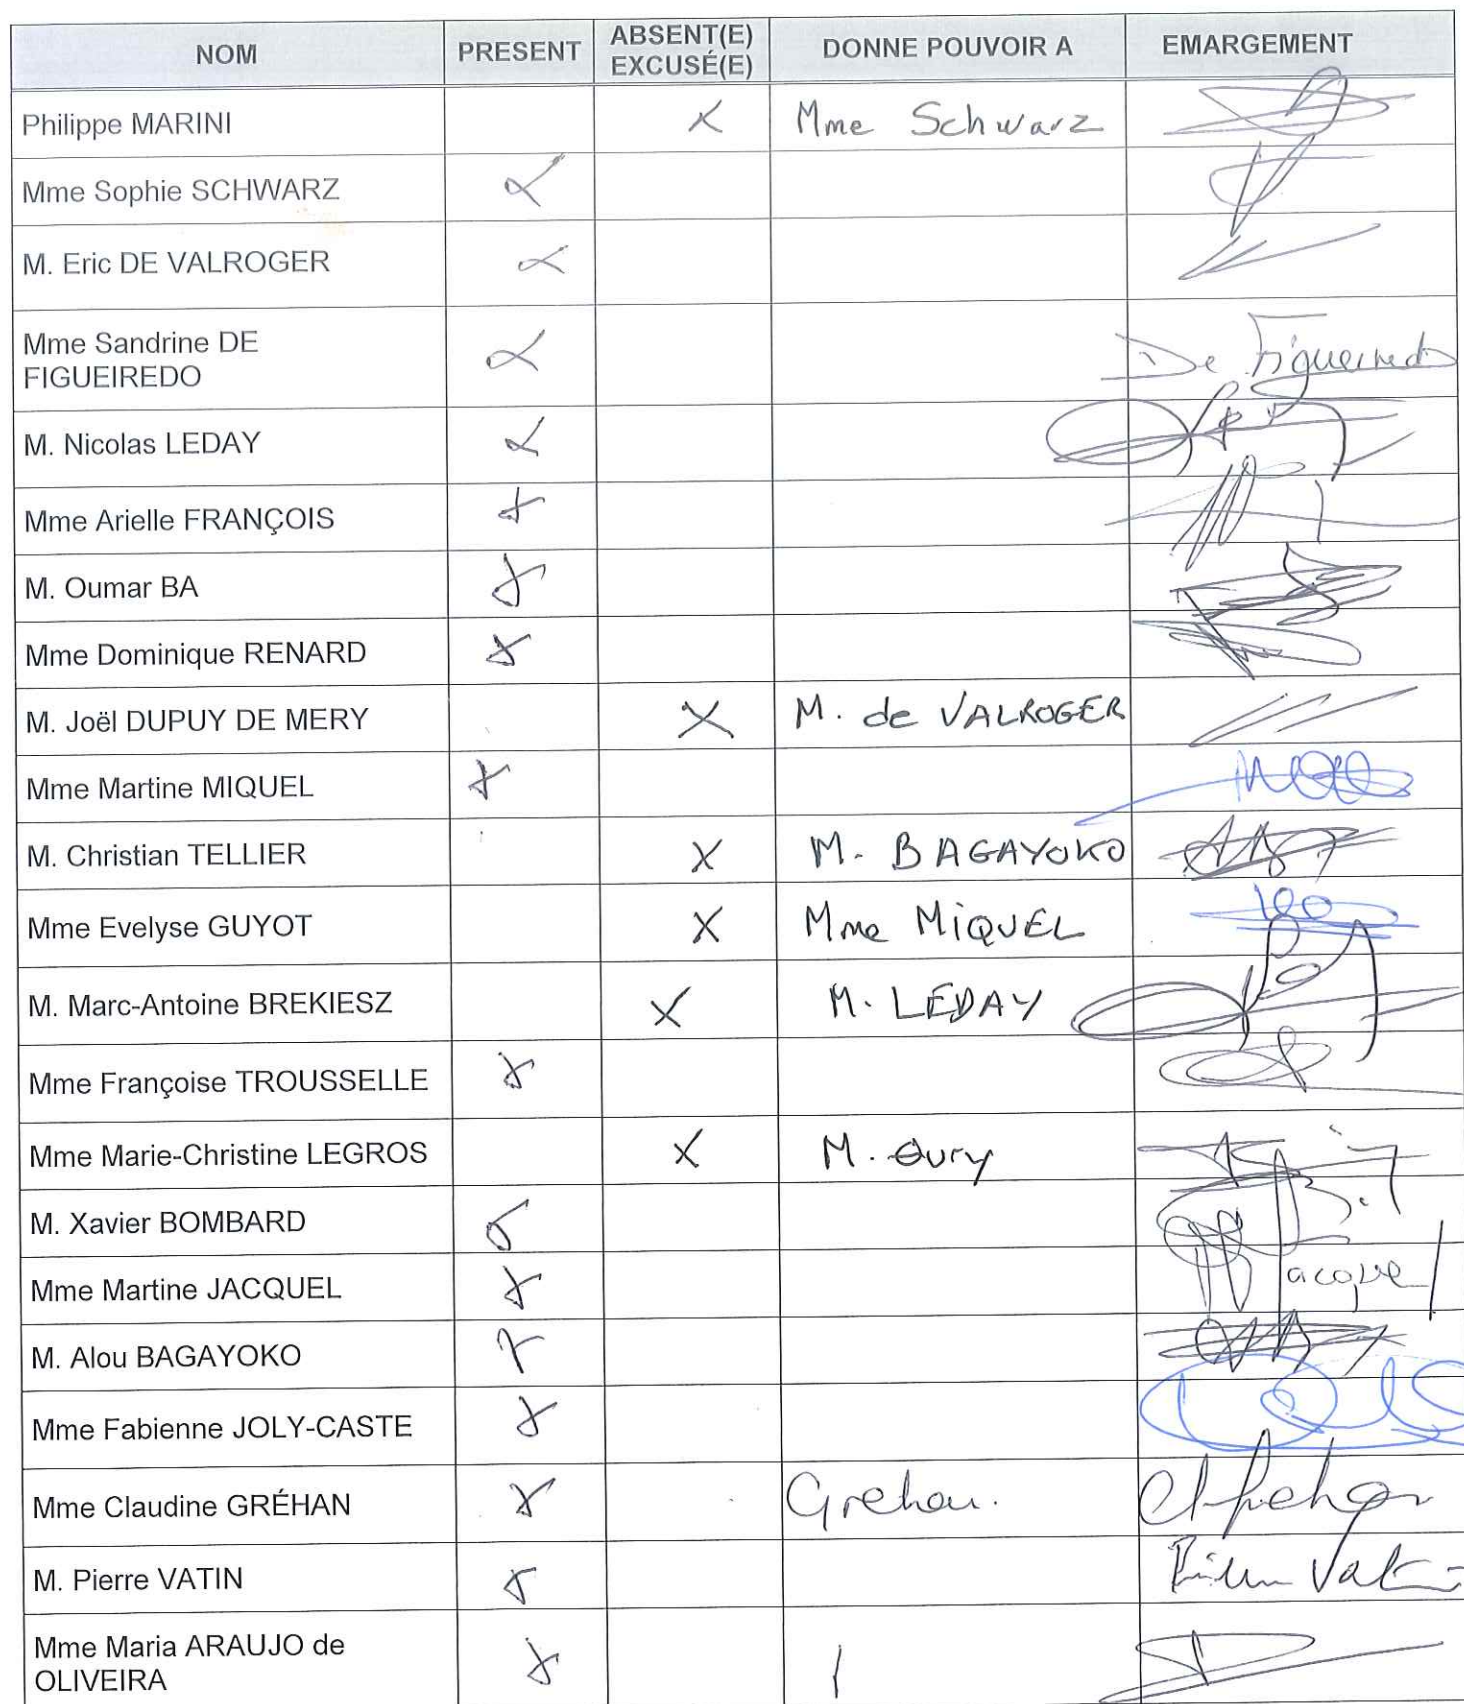 NOM PRESENT ABSENT(E) EXCUSÉ(E) DONNE POUVOIR A EMARGEMENT
Philippe MARINI X Mme Schwarz
Mme Sophie SCHWARZ X
M. Eric DE VALROGER X
Mme Sandrine DE X De Figueiredo
FIGUEIREDO
M. Nicolas LEDAY X
Mme Arielle FRANÇOIS X
M. Oumar BA X
Mme Dominique RENARD X
M. Joël DUPUY DE MERY X M. de VALROGER
Mme Martine MIQUEL X
M. Christian TELLIER X M. BAGAYOKO
Mme Evelyse GUYOT X Mme MiQUEL
M. Marc-Antoine BREKIESZ X M. LEDAY
Mme Françoise TROUSSELLE X
Mme Marie-Christine LEGROS X M. Oury
M. Xavier BOMBARD X
Mme Martine JACQUEL X Jacquel
M. Alou BAGAYOKO X
Mme Fabienne JOLY-CASTE X
Mme Claudine GRÉHAN X Grehan. Grehan
M. Pierre VATIN X Pierre Vatin
Mme Maria ARAUJO de X
OLIVEIRA